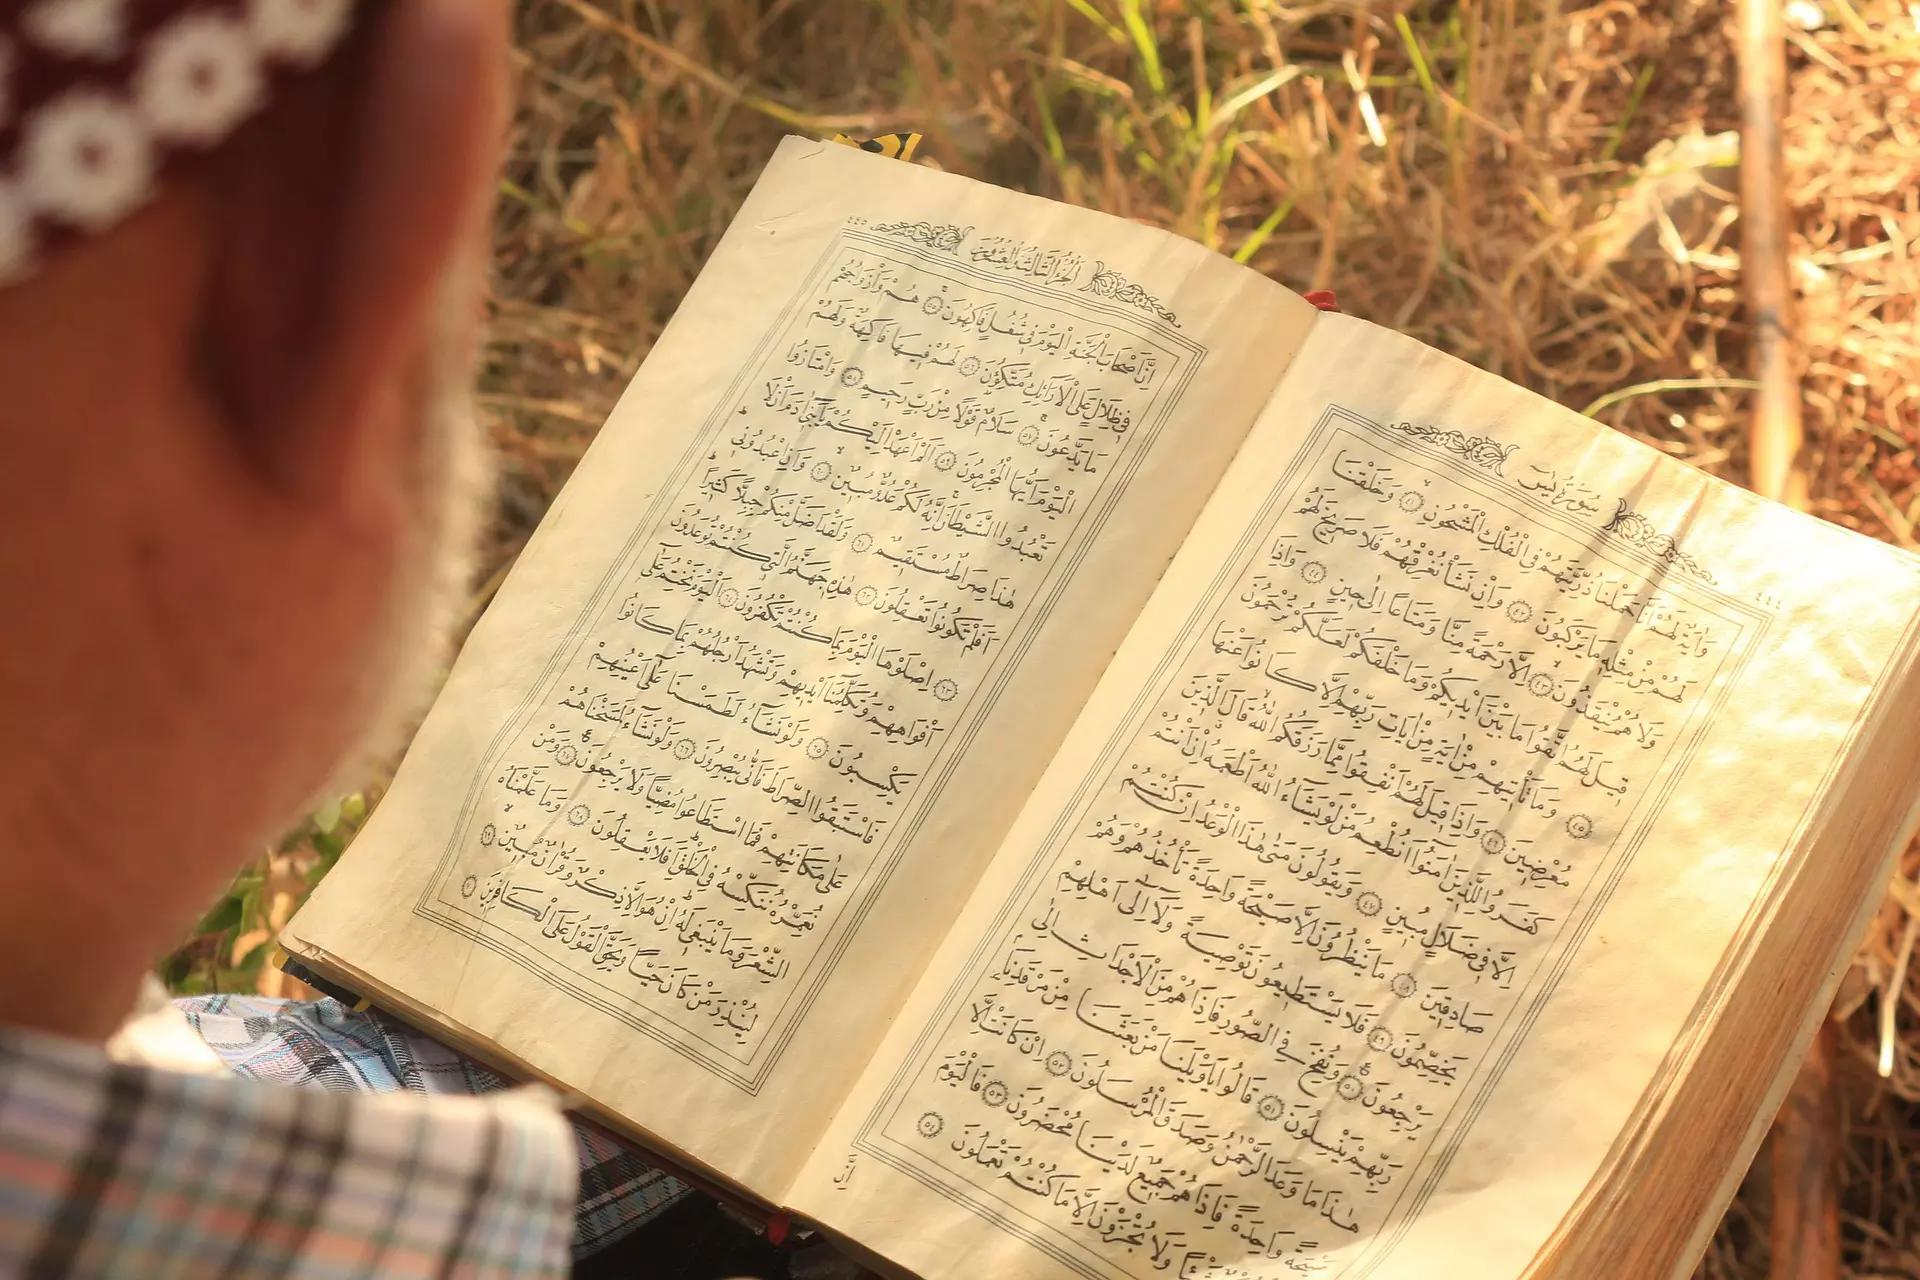 ٤٤٤ سُورَةُ يٰسٓ
وَاٰيَةٌ لَهُمْ اَنَّا حَمَلْنَا ذُرِّيَّتَهُمْ فِي الْفُلْكِ الْمَشْحُونِ ٤١ وَخَلَقْنَا
لَهُمْ مِنْ مِثْلِهِ مَا يَرْكَبُونَ ٤٢ وَاِنْ نَشَأْ نُغْرِقْهُمْ فَلَا صَرِيخَ لَهُمْ
وَلَا هُمْ يُنْقَذُونَ ٤٣ اِلَّا رَحْمَةً مِنَّا وَمَتَاعًا اِلٰى حِينٍ ٤٤ وَاِذَا
قِيلَ لَهُمُ اتَّقُوا مَا بَيْنَ اَيْدِيكُمْ وَمَا خَلْفَكُمْ لَعَلَّكُمْ تُرْحَمُونَ
٤٥ وَمَا تَأْتِيهِمْ مِنْ اٰيَةٍ مِنْ اٰيَاتِ رَبِّهِمْ اِلَّا كَانُوا عَنْهَا
مُعْرِضِينَ ٤٦ وَاِذَا قِيلَ لَهُمْ اَنْفِقُوا مِمَّا رَزَقَكُمُ اللّٰهُ قَالَ الَّذِينَ
كَفَرُوا لِلَّذِينَ اٰمَنُوا اَنُطْعِمُ مَنْ لَوْ يَشَاءُ اللّٰهُ اَطْعَمَهُ اِنْ اَنْتُمْ
اِلَّا فِي ضَلَالٍ مُبِينٍ ٤٧ وَيَقُولُونَ مَتٰى هٰذَا الْوَعْدُ اِنْ كُنْتُمْ
صَادِقِينَ ٤٨ مَا يَنْظُرُونَ اِلَّا صَيْحَةً وَاحِدَةً تَأْخُذُهُمْ وَهُمْ
يَخِصِّمُونَ ٤٩ فَلَا يَسْتَطِيعُونَ تَوْصِيَةً وَلَا اِلٰى اَهْلِهِمْ
يَرْجِعُونَ ٥٠ وَنُفِخَ فِي الصُّورِ فَاِذَا هُمْ مِنَ الْاَجْدَاثِ اِلٰى
رَبِّهِمْ يَنْسِلُونَ ٥١ قَالُوا يَا وَيْلَنَا مَنْ بَعَثَنَا مِنْ مَرْقَدِنَا
هٰذَا مَا وَعَدَ الرَّحْمٰنُ وَصَدَقَ الْمُرْسَلُونَ ٥٢ اِنْ كَانَتْ اِلَّا
صَيْحَةً وَاحِدَةً فَاِذَا هُمْ جَمِيعٌ لَدَيْنَا مُحْضَرُونَ ٥٣ فَالْيَوْمَ
شَيْئًا وَلَا تُجْزَوْنَ اِلَّا مَا كُنْتُمْ تَعْمَلُونَ ٥٤
اِنَّ
اَلْجُزْءُ الثَّالِثُ وَالْعِشْرُونَ ٤٤٥
اِنَّ اَصْحَابَ الْجَنَّةِ الْيَوْمَ فِي شُغُلٍ فَاكِهُونَ ٥٥ هُمْ وَاَزْوَاجُهُمْ
فِي ظِلَالٍ عَلَى الْاَرَائِكِ مُتَّكِؤُنَ ٥٦ لَهُمْ فِيهَا فَاكِهَةٌ وَلَهُمْ
مَا يَدَّعُونَ ٥٧ سَلَامٌ قَوْلًا مِنْ رَبٍّ رَحِيمٍ ٥٨ وَامْتَازُوا
الْيَوْمَ اَيُّهَا الْمُجْرِمُونَ ٥٩ اَلَمْ اَعْهَدْ اِلَيْكُمْ يَا بَنِي اٰدَمَ اَنْ لَا
تَعْبُدُوا الشَّيْطَانَ اِنَّهُ لَكُمْ عَدُوٌّ مُبِينٌ ٦٠ وَاَنِ اعْبُدُونِي
هٰذَا صِرَاطٌ مُسْتَقِيمٌ ٦١ وَلَقَدْ اَضَلَّ مِنْكُمْ جِبِلًّا كَثِيرًا
اَفَلَمْ تَكُونُوا تَعْقِلُونَ ٦٢ هٰذِهِ جَهَنَّمُ الَّتِي كُنْتُمْ تُوعَدُونَ
٦٣ اِصْلَوْهَا الْيَوْمَ بِمَا كُنْتُمْ تَكْفُرُونَ ٦٤ اَلْيَوْمَ نَخْتِمُ عَلٰى
اَفْوَاهِهِمْ وَتُكَلِّمُنَا اَيْدِيهِمْ وَتَشْهَدُ اَرْجُلُهُمْ بِمَا كَانُوا
يَكْسِبُونَ ٦٥ وَلَوْ نَشَاءُ لَطَمَسْنَا عَلٰى اَعْيُنِهِمْ
فَاسْتَبَقُوا الصِّرَاطَ فَاَنّٰى يُبْصِرُونَ ٦٦ وَلَوْ نَشَاءُ لَمَسَخْنَاهُمْ
عَلٰى مَكَانَتِهِمْ فَمَا اسْتَطَاعُوا مُضِيًّا وَلَا يَرْجِعُونَ ٦٧ وَمَنْ
نُعَمِّرْهُ نُنَكِّسْهُ فِي الْخَلْقِ اَفَلَا يَعْقِلُونَ ٦٨ وَمَا عَلَّمْنَاهُ
الشِّعْرَ وَمَا يَنْبَغِي لَهُ اِنْ هُوَ اِلَّا ذِكْرٌ وَقُرْاٰنٌ مُبِينٌ ٦٩
لِيُنْذِرَ مَنْ كَانَ حَيًّا وَيَحِقَّ الْقَوْلُ عَلَى الْكَافِرِينَ ٧٠